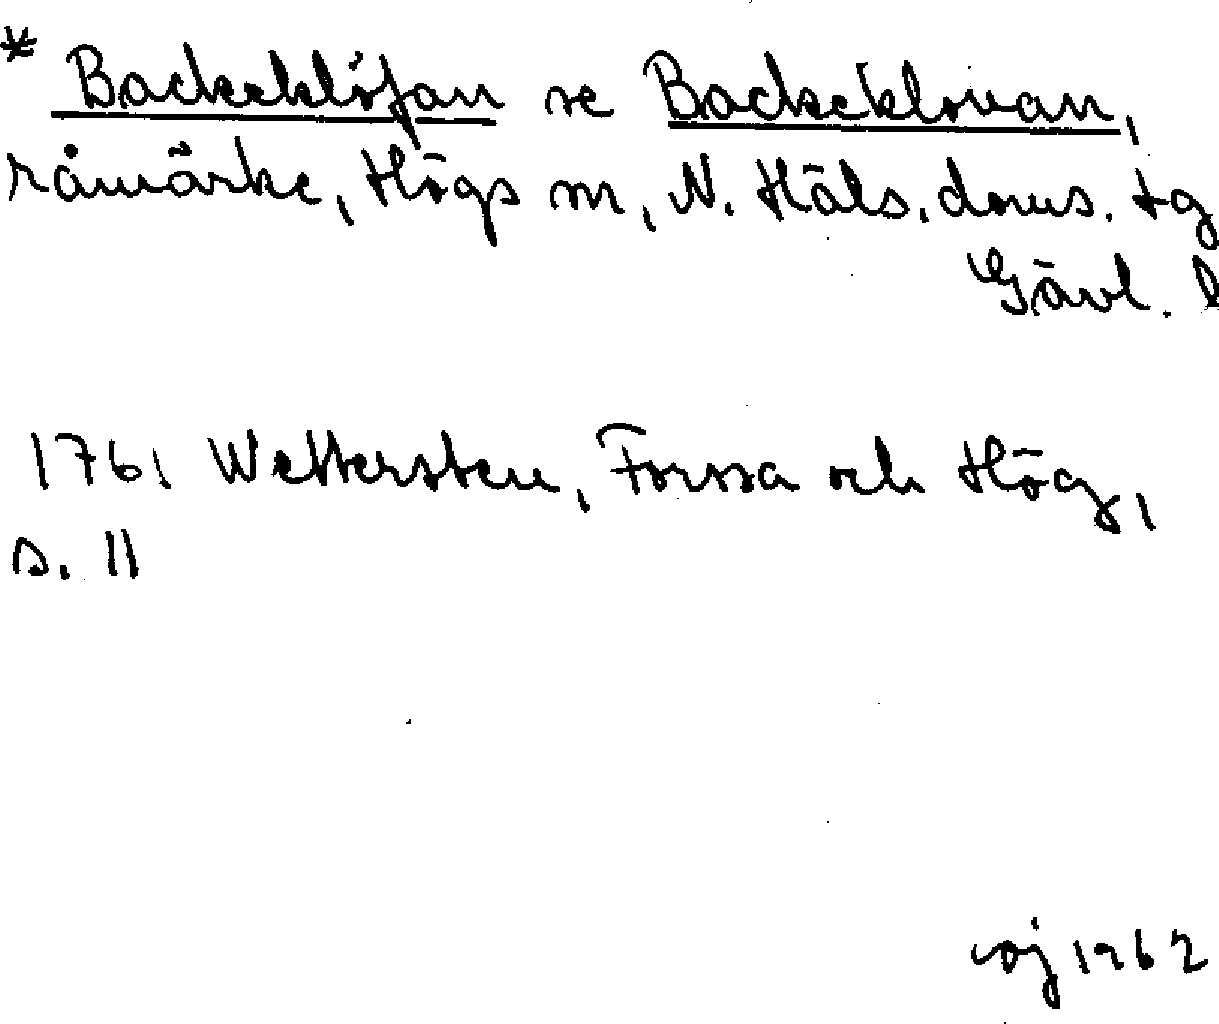 * Backeklöfan se Backeklovan,
råmärke, Högs sn, N. Häls. doms. tg
Gävl. l
1761 Wettersten, Forssa och Hög,
s. 11
1962